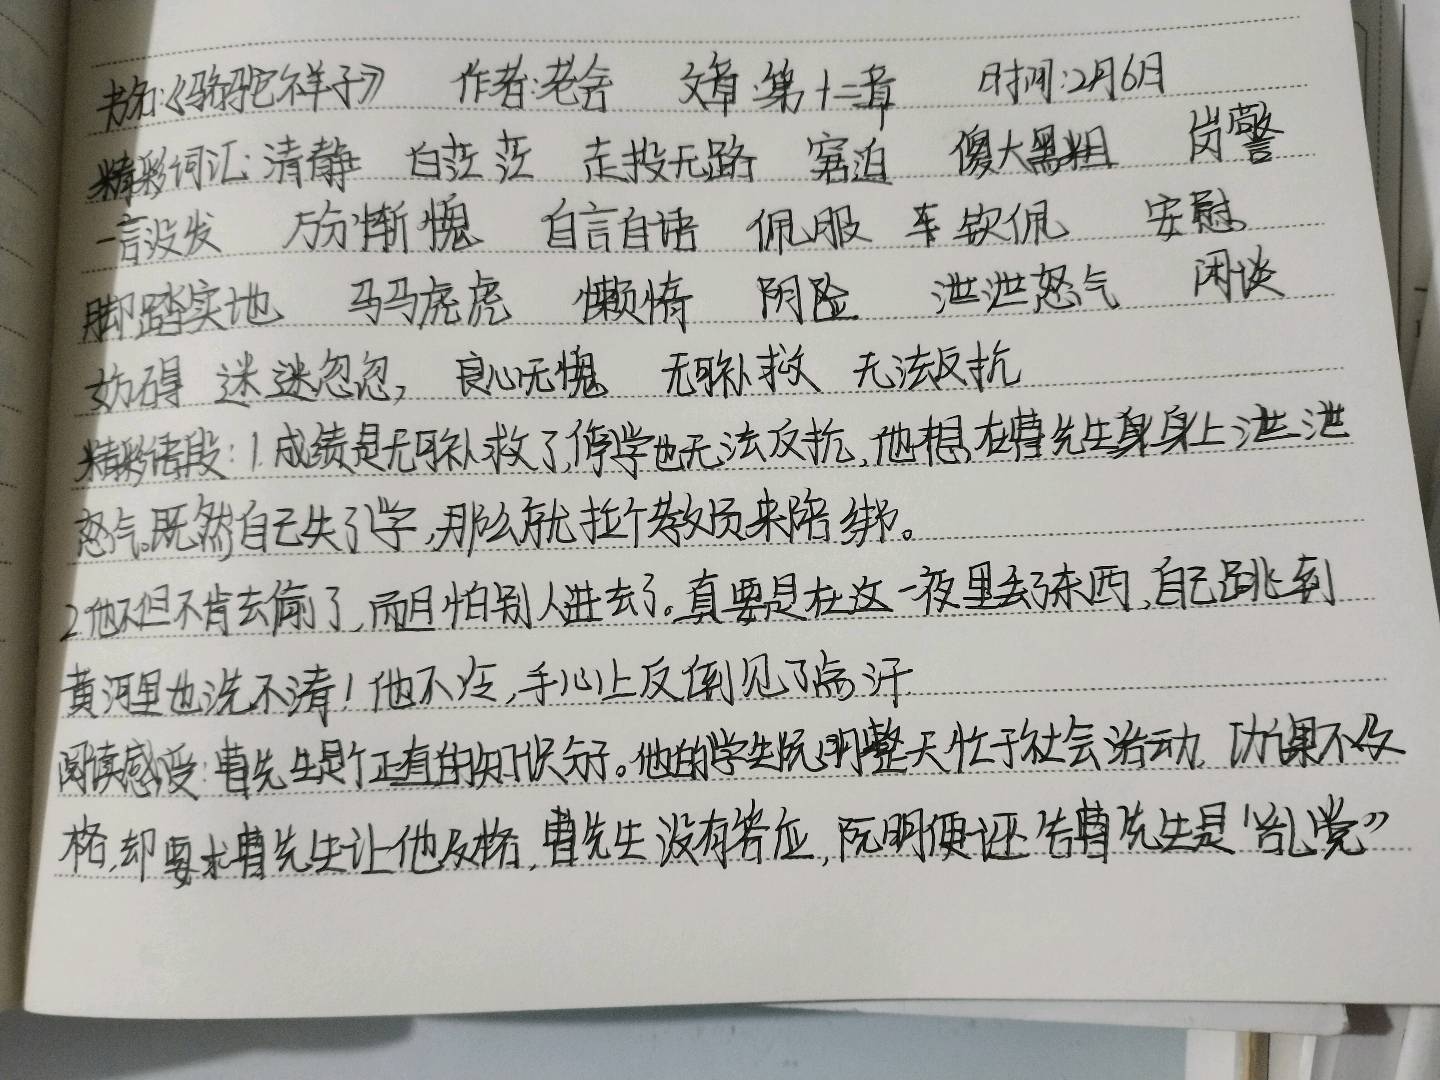 书名:《骆驼祥子》 作者:老舍 文章:第十二章 时间:2月6日
精彩词汇:清静 白茫茫 走投无路 窘迫 傻大黑粗 岗警
一言没发 万分惭愧 自言自语 佩服 钦佩 安慰
脚踏实地 马马虎虎 懒惰 阴险 泄泄怒气 闲谈
妨碍 迷迷忽忽, 良心无愧 无可补救 无法反抗
精彩语段:1.成绩是无可补救了,停学也无法反抗,他想在曹先生身上泄泄
怒气。既然自己失了学,那么就拉个教员来陪绑。
2.他不但不肯去偷了,而且怕别人进去了。真要是在这一夜里丢了东西,自己跳到
黄河里也洗不清!他不冷,手心上反倒见了点汗.
阅读感受:曹先生是个正直的知识分子。他的学生阮明整天忙于社会活动,功课不及
格,却要求曹先生让他及格,曹先生没有答应,阮明便诬告曹先生是"乱党"